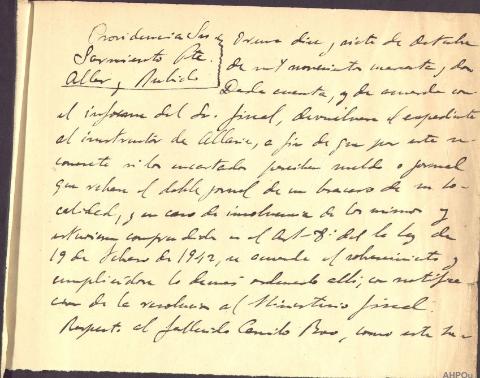 Providencia Sres
Sarmiento Pte.
Aller y Pulido
Orense diez y siete de Octubre
de mil novecientos cuarenta y dos
Dada cuenta, y de acuerdo con
el informe del Sr. Fiscal, devuélvase el expediente
al instructor de Allariz, a fin de que por este se
concrete si los encartados perciben sueldo o jornal
que rebase el doble jornal de un bracero de su lo-
calidad, y en caso de insolvencia de los mismos y
estuviesen comprendidos en el Art. 8º de la ley de
19 de Febrero de 1942, se acuerde el sobreseimiento y
cumpliéndose lo demás ordenado allí, con notifica
cion de la resolucion al Ministerio fiscal.
Respecto al fallecido Camilo Boo, como este su-
AHPOu